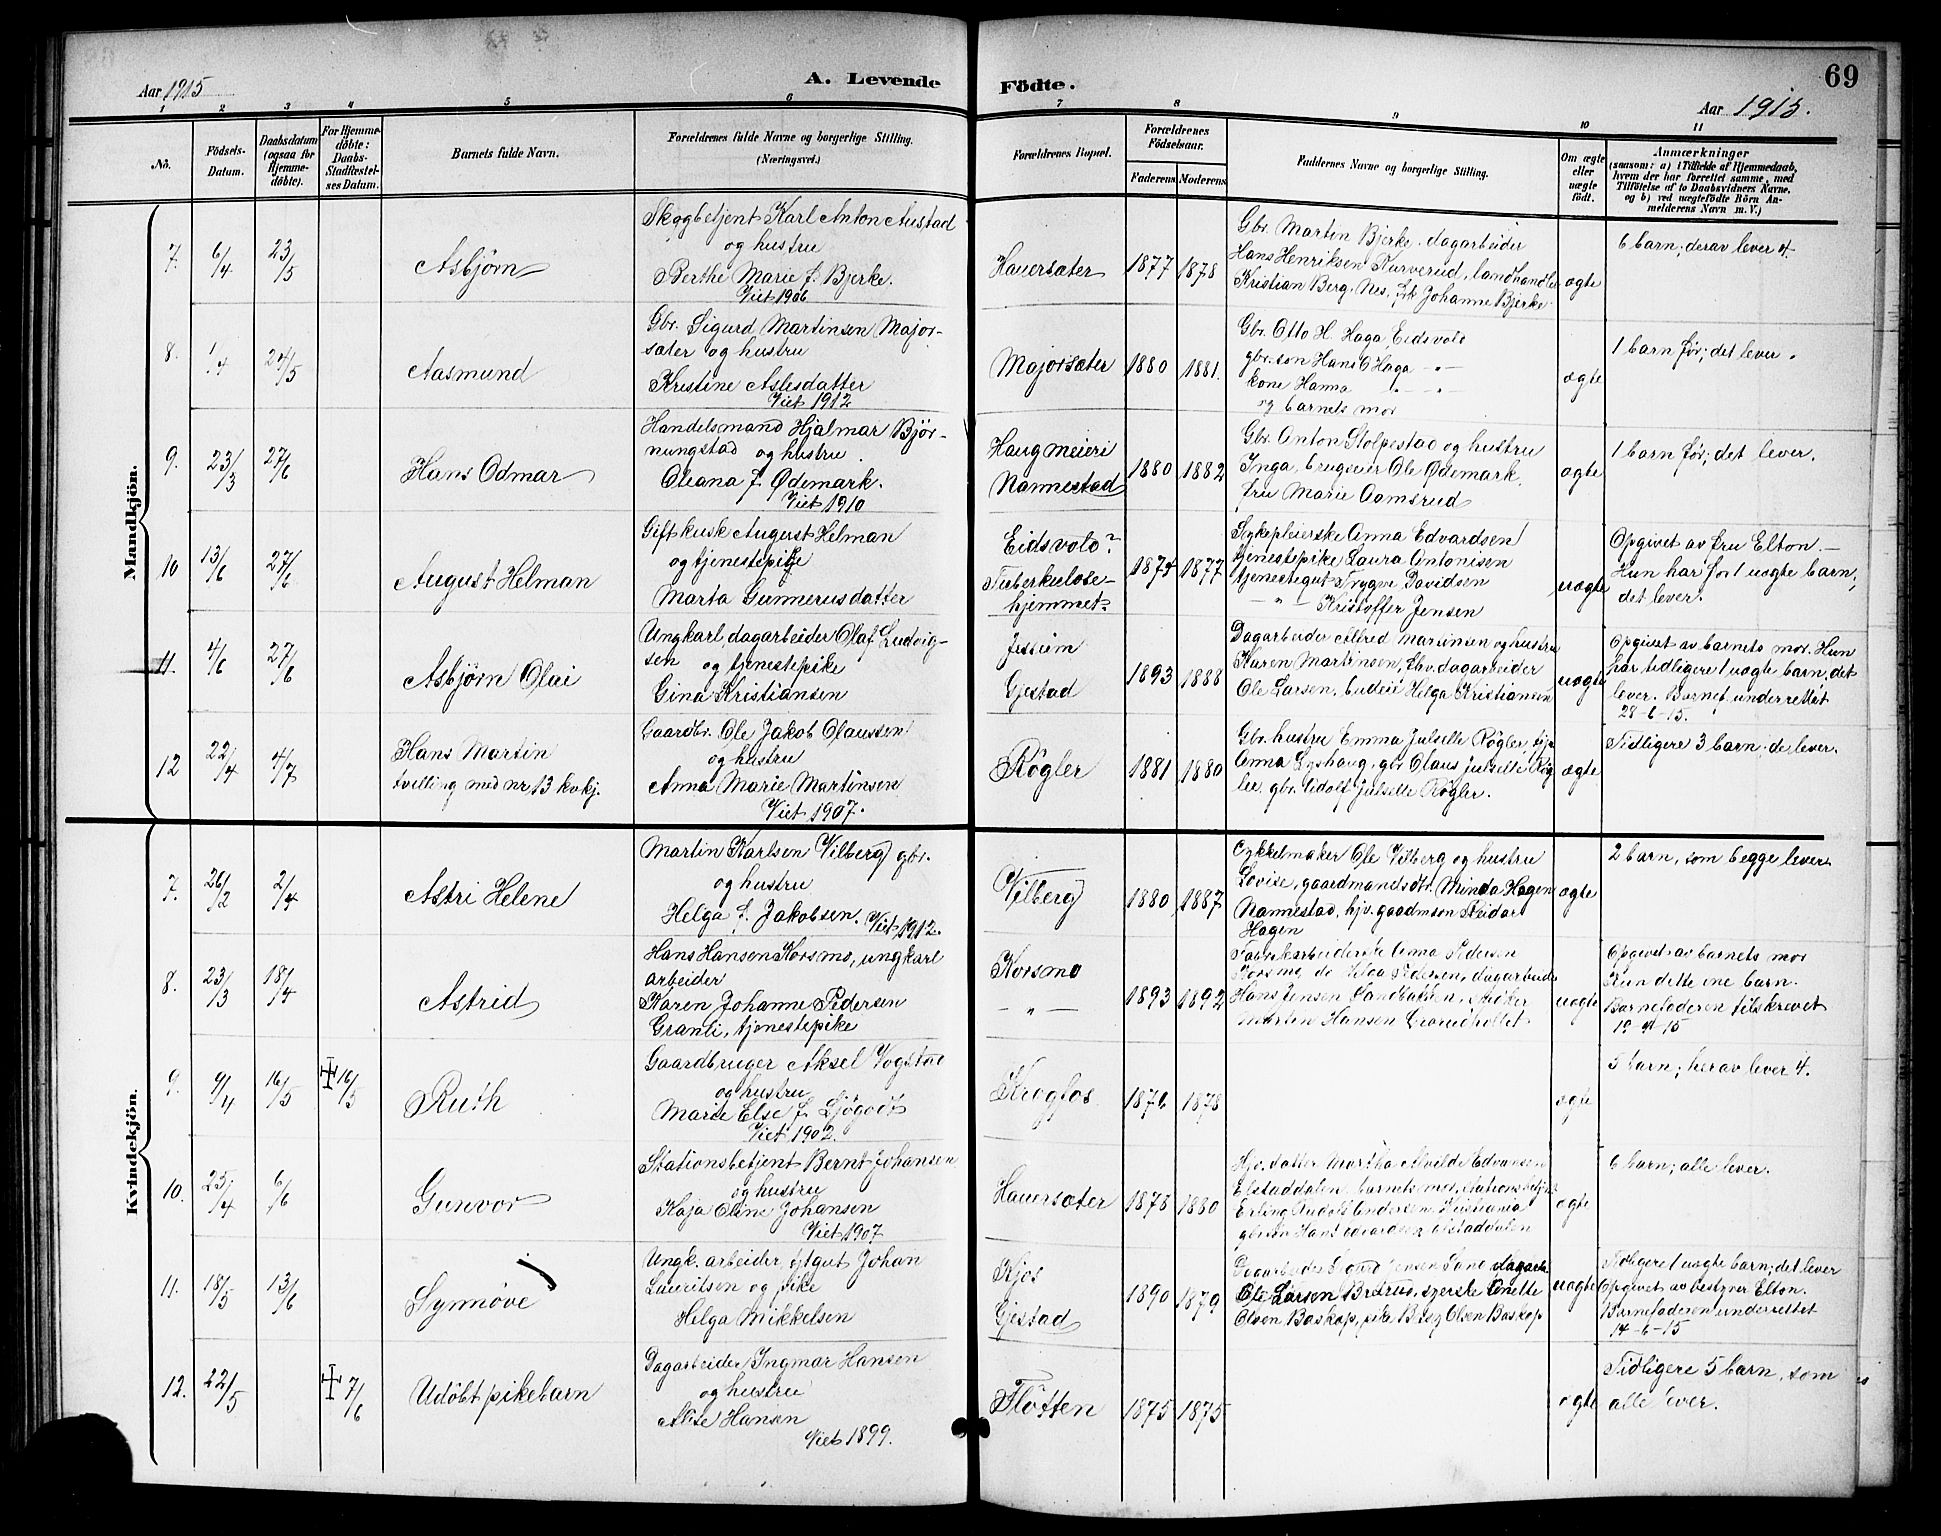 Aar 1915
A. Levende
Födte.
69
Aar 1915.
1 2 3 4 5 6 7 8 9 10 11
No.
Födsels-
Datum.
Daabsdatum
(ogsaa for
Hjemme-
döbte).
For Hjemme-
döbte:
Daabs-
Stadfæstel-
ses Datum.
Barnets fulde Navn.
Forældrenes fulde Navne og borgerlige Stilling.
(Næringsvei.)
Forældrenes Bopæl.
Forældrenes
Födselsaar.
Faderens
Moderens
Faddernes Navne og borgerlige Stilling.
Om ægte
eller
uægte
født.
Anmærkninger
(saasom: a) i Tilfælde af Hjemmedaab,
hvem der har forrettet samme, med
Tilföielse af to Daabsvidners Navne.
og b) ved uægtefödte Börn An-
melderens Navn m. V.)
Mandkjön.
7. 6/4 23/5
Asbjörn
Skogbetjent Karl Anton Austad
og hustru
Berthe Marie f. Bjerke.
Viet 1906
Hauersæter 1877 1878
Gbr. Martin Bjerke. dagarbeider
Hans Henriksen Kurverud, landhandler
Kristian Berg. Nes, Johanne Bjerke
ægte
6 barn; derav lever 4.
8. 1/4 24/5
Aasmund
Gbr. Sigurd Martinsen Major-
sæter og hustru
Kristine Aslesdatter
Viet 1912
Majorsæter 1880 1881.
Gbr. Otto H. Haga, Eidsvold
gbr. son Hans O Haga - " -
kone Hanna - " -
og barnets mor
ægte
1 barn før; det lever.
9. 23/3 27/6
Hans Odmar
Handelsmand Hjalmar Bjør-
nungstad og hustru
Oleana f. Ødemark.
Viet 1910
Haug meieri
Nannestad
1880 1882
Gbr. Anton Stolpestad og hustru
Inga, brugseier Ole Ødemark,
fru Marie Aamsrud
ægte
1 barn før; det lever.
10 13/6 27/6
August Helman
Gift kusk August Helman
og tjenestepike
Marta Gunnerusdatter
Eidsvold?
Tuberkulose-
hjemmet?
1874 1877
Sykepleierske Anna Edvardsen
tjenestepike Laura Antonisen
tjenestegut Trygve Davidsen
- " - Kristoffer Jensen
uægte
Opgivet av fru Elton. —
Hun har før 1 uægte barn;
det lever.
11. 4/6 27/6
Asbjørn Olai
Ungkarl, dagarbeider Olaf Ludvig-
sen og tjenestepike
Gina Kristiansen
Jessum
Gjestad
1893 1888
Dagarbeider Alfred Martinsen og hustru
Karen Martinsen, dagarbeider
Ole Larsen, budeie Helga Kristiansen
uægte
Opgivet av barnets mor. Hun
har tidligere 1 uægte barn, det
lever. Barnef. underrettet
28-6-15.
12 22/4 4/7
Hans Martin
tvilling med nr. 13 kvkj.
Gaardbr. Ole Jakob Olaussen
og hustru
Anna Marie Martinsen
Viet 1907.
Røgler 1881 1880
Gbr. hustru Emma Julselle Røgler,
Anna Lyshaug, gbr. Olaus Julselle Røg
ler. gbr. Adolf Julselle Røgler.
ægte
Tidligere 3 barn; de lever.
Kvindekjön.
7. 26/2 2/4
Astri Helene
Martin Karlsen Vilberg gbr.
og hustru
Helga f. Jakobsen. Viet 1912.
Vilberg 1880 1887
Cykkelmaker Ole Vilberg og hustru
Lovise, gaardmandsdtr. Minda Hagen
Nannestad, hjv. gaadmsøn Reidar
Hagen
ægte
2 barn, som begge lever.
8. 23/3 18/4
Astrid
Hans Hansen Korsmo, ungkarl
arbeider
Karen Johanne Pedersen
Granli, tjenestepike
Korsmo
- " -
1893 1892
Fabrikarbeiderske Anna Pedersen
Korsmo, do Hilda Pedersen, dagarbeider
Hans Jensen Sandbakken,
Martin Hansen
uægte
Opgivet av barnets mor
Kun dette ene barn.
Barnefaderen tilskrevet
19-4-15
9. 9/4 16/5 † 16/5
Ruth
Gaardbruger Aksel Vogstad
og hustru
Marie Else f. Ljøgodt
Viet 1902.
Krogfos 1876 1878
ægte
5 barn; herav lever 4.
10. 23/4 6/6
Gunvor
Stationsbetjent Bernt Johansen
og hustru
Kaja Oline Johansen
Viet 1907
Hauersæter 1878 1880
Hjv. datter Martha Alvilde Edvardsen
Elstaddalen, barnets mor, Stationsbetjent
Erling Rudolf Andersen, Kristiania
gbrsøn Hans Edvardsen Elstaddalen
ægte
6 barn; alle lever.
11. 18/5 13/6
Synnøve
Ungk. arbeider, Johan
Lauritsen og pike
Helga Mikkelsen
Kjos
Gjestad
1890 1879
Dagarbeider Jensen Sand
Ole Larsen Brotrud, syerske Anette
Olsen Baskop, pike Olsen Baskop
uægte
Tidligere 1 uægte barn; det lever
Opgivet av bestyrer Elton.
Barnefaderen underrettet
14-6-15
12. 22/5 † 7/6
Udöbt pikebarn
Dagarbeider Ingmar Hansen
og hustru
Alise Hansen
Viet 1899.
Fløtten 1875 1875
ægte
Tidligere 5 barn, som
alle lever.